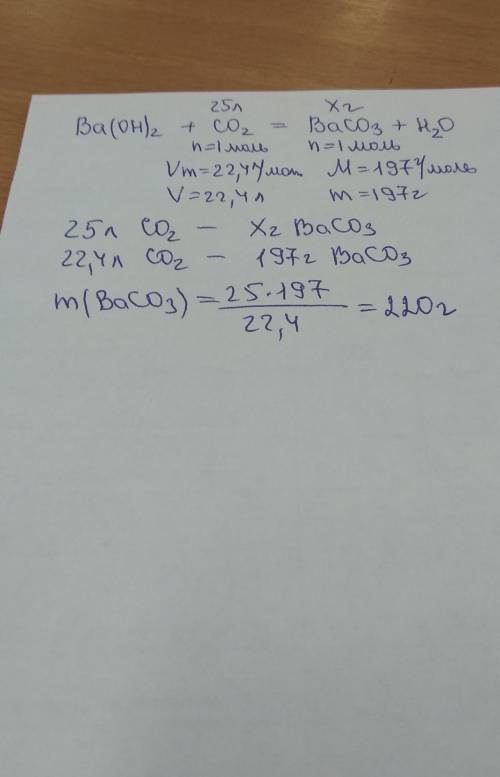 25л x г
Ba(OH)₂ + CO₂ = BaCO₃ + H₂O
n=1моль n=1моль
Vm=22,4л/мол M=197г/моль
V=22,4л m=197г
25л CO₂ — xг BaCO₃
22,4л CO₂ — 197г BaCO₃
m(BaCO₃) = 25·197 / 22,4 = 220г